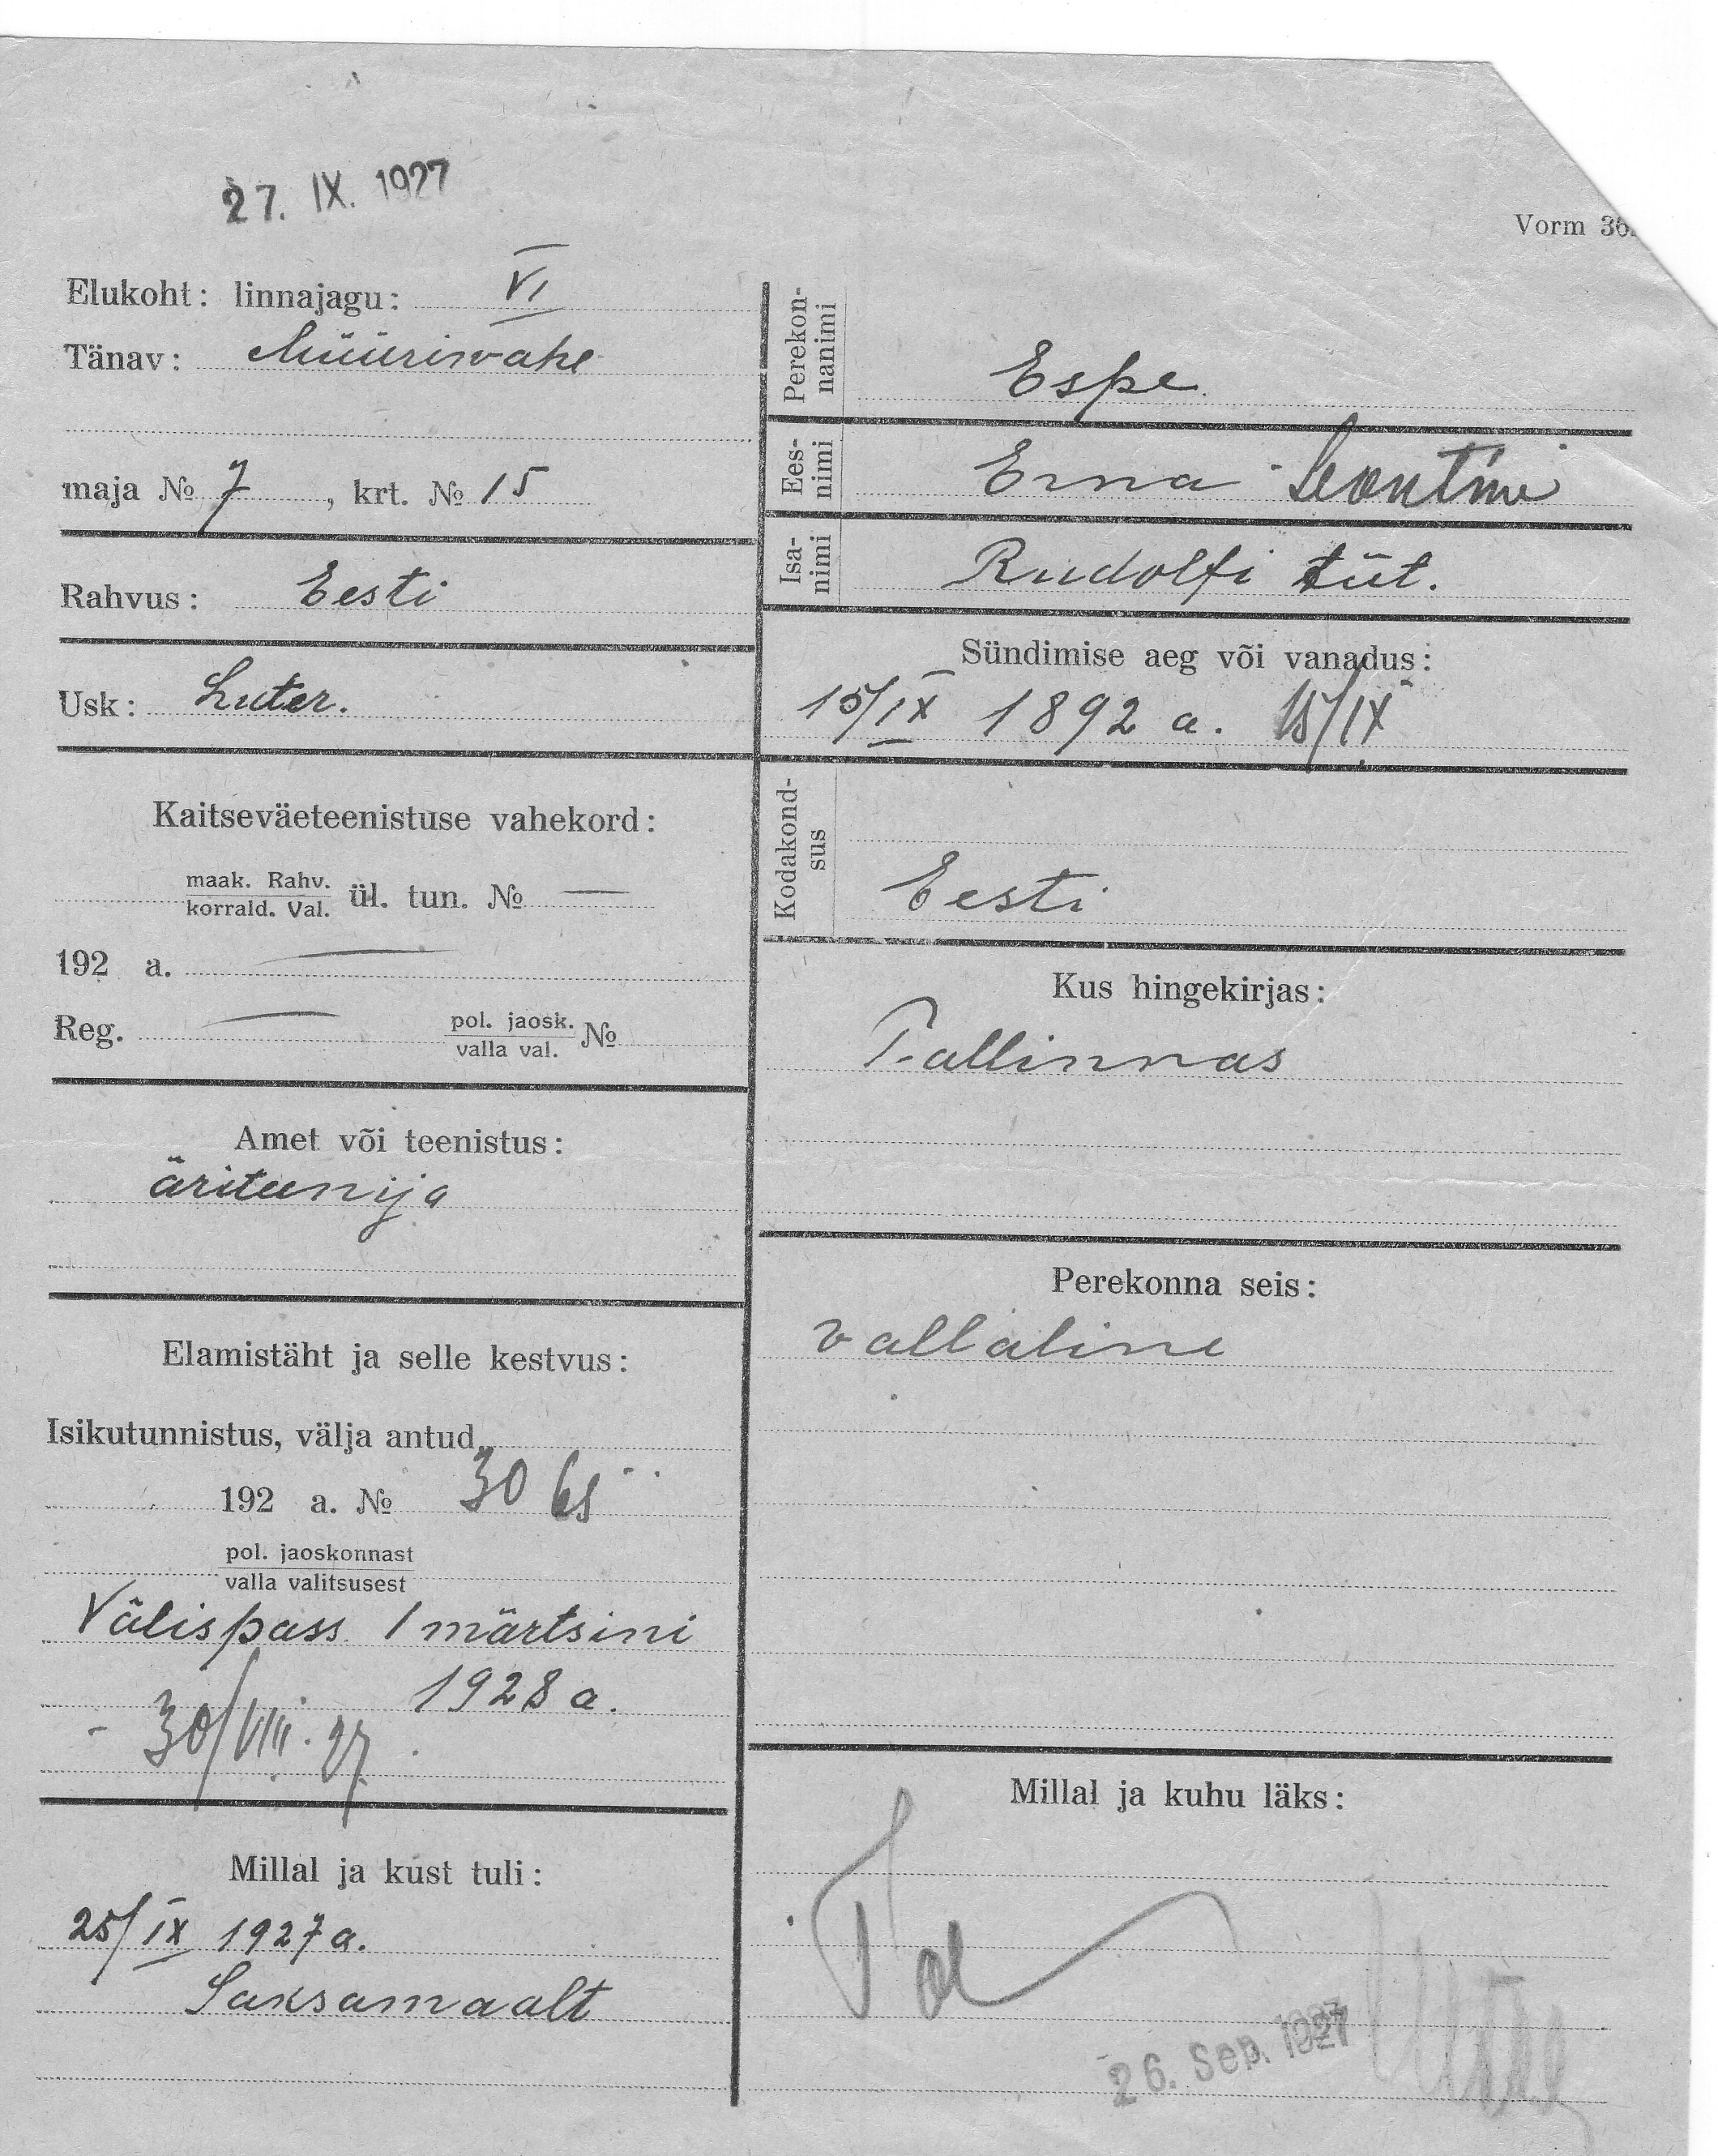 27. IX. 1927
Vorm 36
Elukoht: linnajagu: VI
Tänav: Müüriwahe
maja № 7, krt. № 15
Rahvus: Eesti
Usk: Luter.
Kaitseväeteenistuse vahekord:
maak. Rahv.
korrald. Val.
ül. tun. № —
192 a. —
Reg. — pol. jaosk. №
valla val.
Amet või teenistus:
äriteenija
Elamistäht ja selle kestvus:
Isikutunnistus, välja antud
192 a. № 30
pol. jaoskonnast
valla valitsusest
Välispass 1 märtsini
1928 a.
- 30/VIII. 27.
Millal ja kust tuli:
25/IX 1927 a.
Saksamaalt
Perekon-
nanimi
Espe.
Ees-
nimi
Erna Leontine
Isa-
nimi
Rudolfi tüt.
Sündimise aeg või vanadus:
15/IX 1892 a. 15/IX
Kodakond-
sus
Eesti
Kus hingekirjas:
Tallinnas
Perekonna seis:
vallaline
Millal ja kuhu läks:
26. Sep. 1927